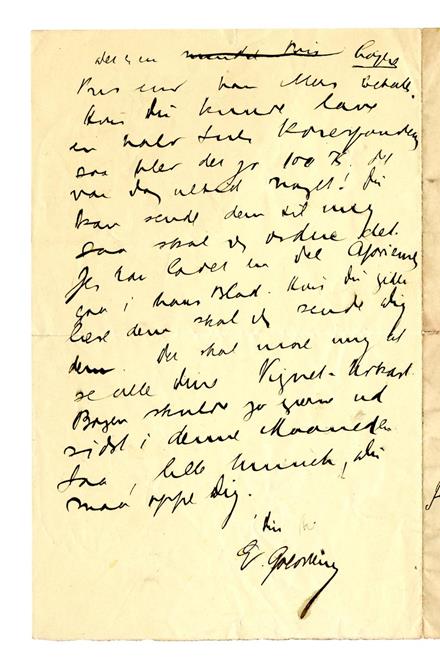 det er en mindre Pris højere
Pris end han ellers betaler.
Hvis Du kunde lave
en halv Snes Korrespondancer
saa blev det jo 100 Kr. det
var dog altid noget! Du
kan sende dem til mig
saa skal jeg ordne det.
Jeg har ladet en Del Aforismer
gaa i hans Blad. Hvis Du gider
læse dem skal jeg sende Dig
dem. Det skal more mig at
se alle dine Vignet-Udkast
Bogen skulde jo gerne ud
sidst i denne Maaned.
Saa, lille Munch, du
maa oppe Dig.
Din
E. Goldstein